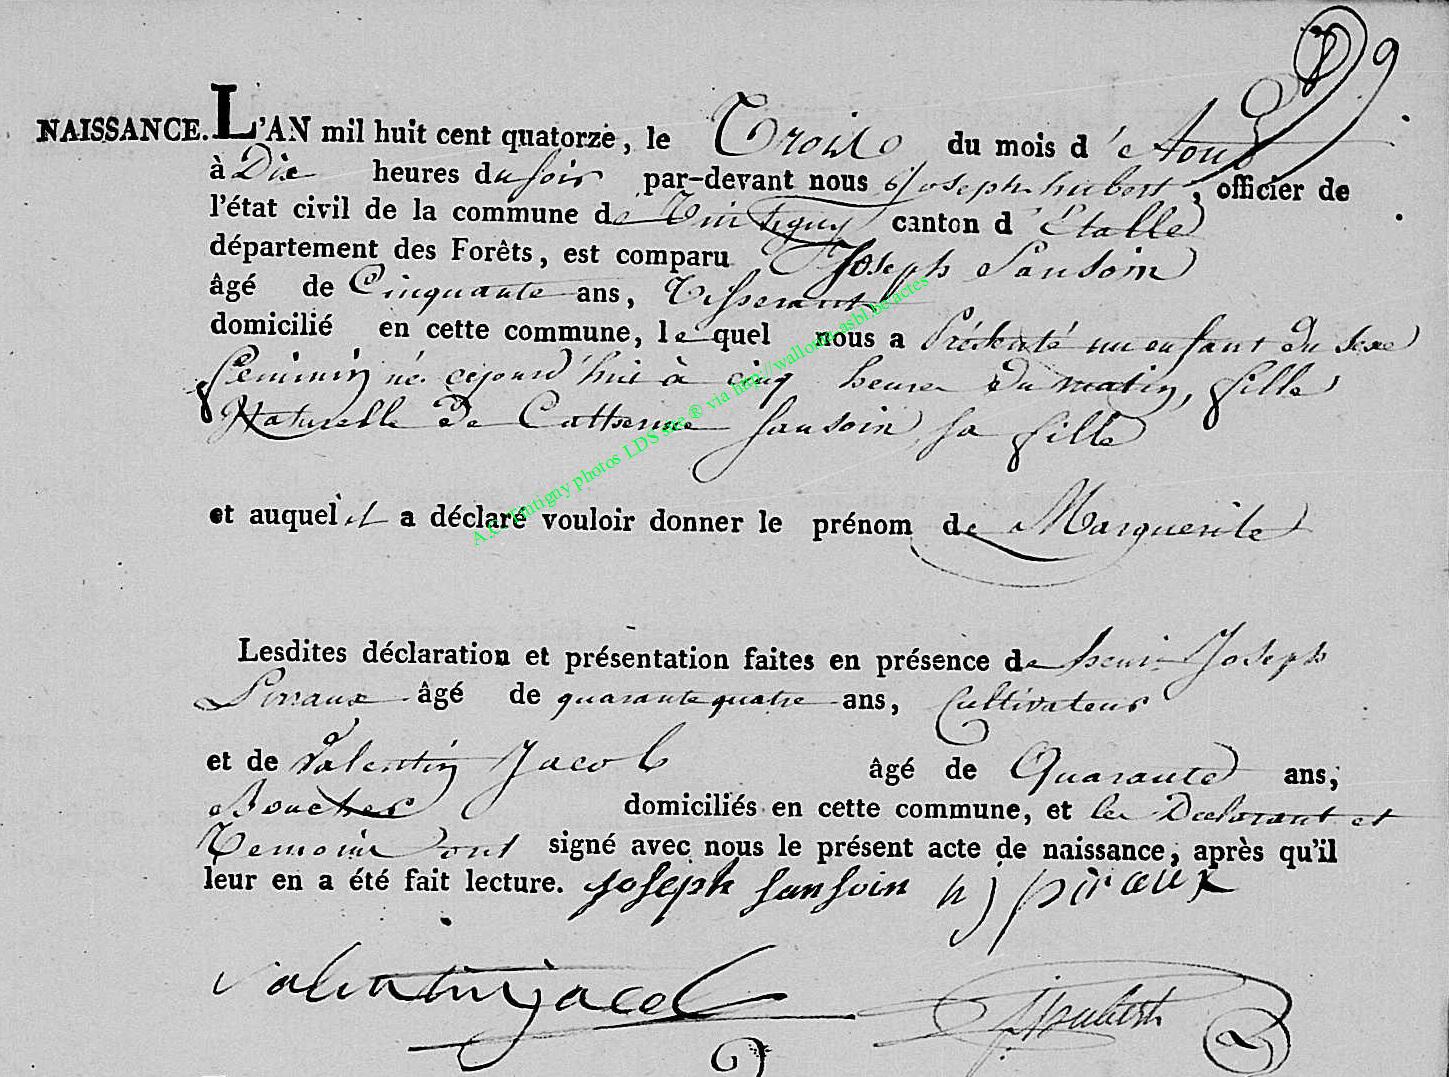 9
NAISSANCE. L'AN mil huit cent quatorze, le Trois du mois d'Aout
à Dix heures du soir par-devant nous Joseph hubert, officier de
l'état civil de la commune de Tintigny canton d'Etalle
département des Forêts, est comparu Joseph Sansoin
âgé de Cinquante ans, Tisserant
domicilié en cette commune, le quel nous a Présenté un enfant du sexe
feminin né cejourd'hui à cinq heures du matin, fille
Naturelle de Catherine Sansoin, sa fille
et auquel il a déclaré vouloir donner le prénom de Marguerite
Lesdites déclaration et présentation faites en présence de henri Joseph
âgé de quarante quatre ans, Cultivateur
et de Valentin Jacob âgé de Quarante ans,
Boucher domiciliés en cette commune, et les Declarant et
Temoins ont signé avec nous le présent acte de naissance, après qu'il
leur en a été fait lecture. joseph sansoin h j piraux
valentin jacob jhubert
A.C. Tintigny photos LDS site ® via http://wallonia-asbl.be/actes